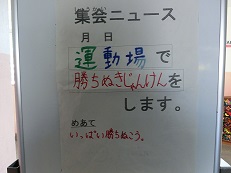 集会ニュース
月 日
運動場で
勝ちぬきじゃんけんを
します。
めあて
いっぱい勝ちぬこう。